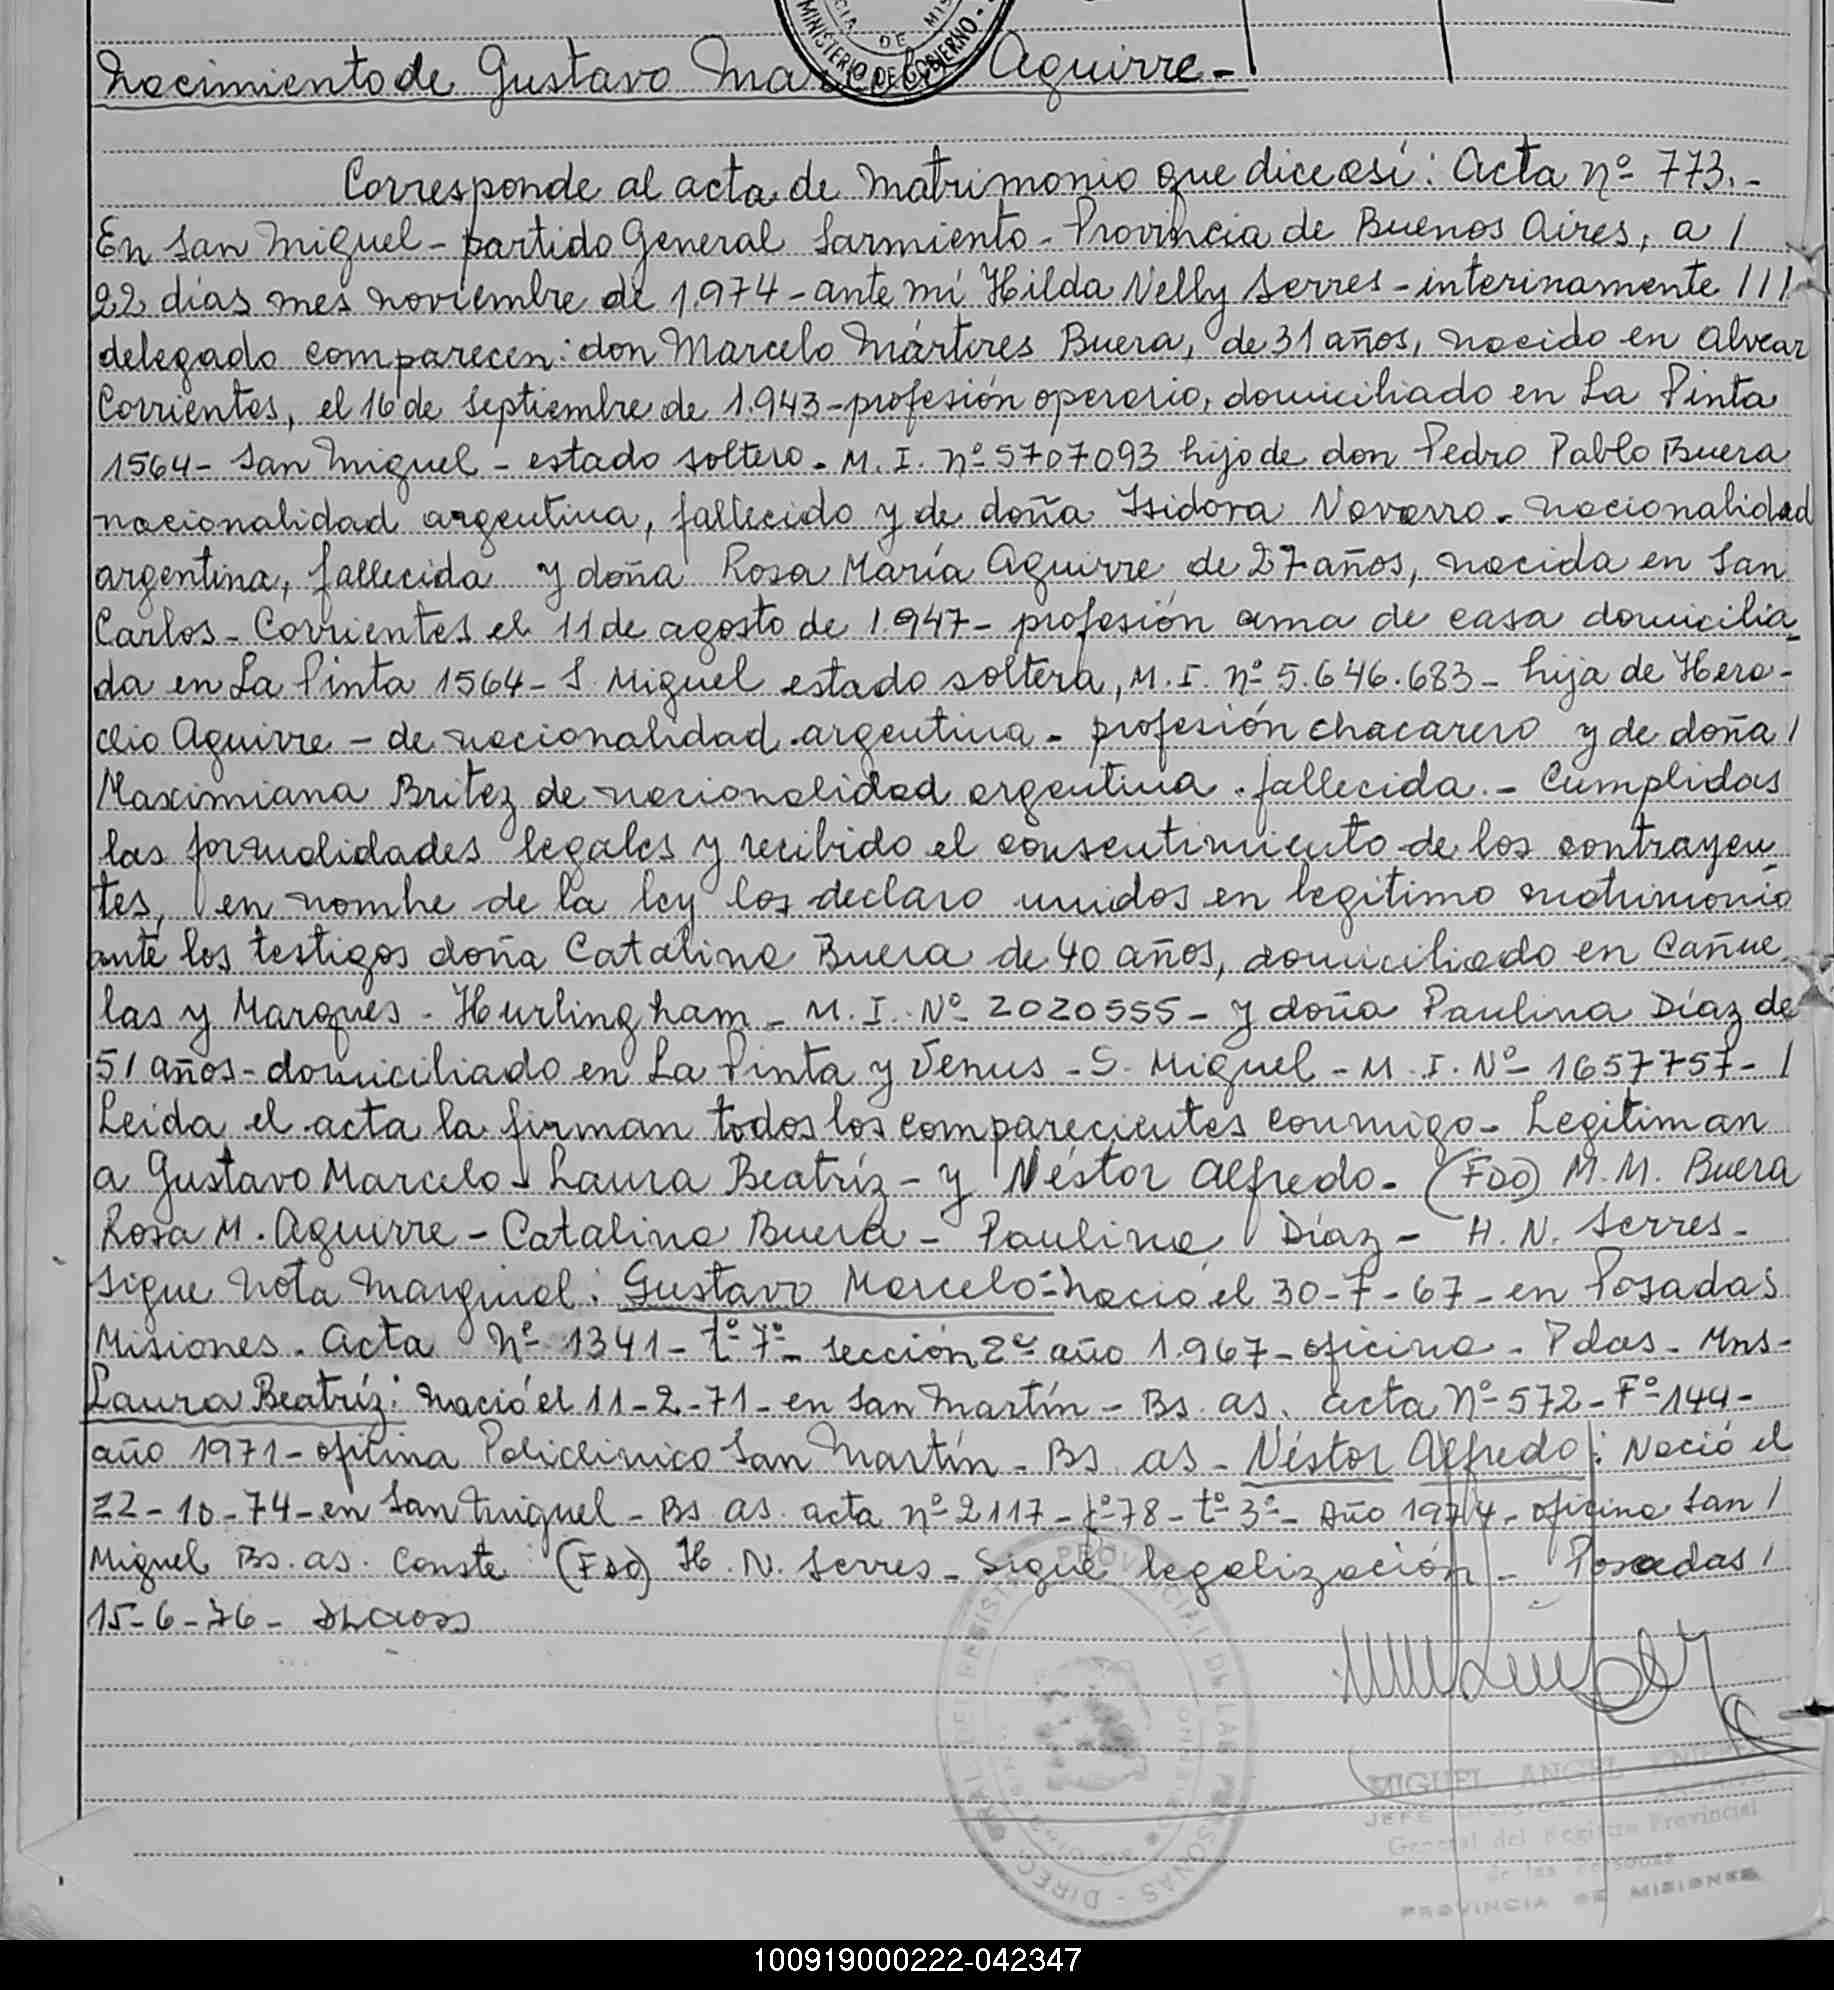 Nacimiento de Gustavo Marcelo Aguirre -
MINISTERIO DE GOBIERNO -
Corresponde al acta de matrimonio que dice así: Acta nº 773. -
En San Miguel - partido General Sarmiento - Provincia de Buenos Aires, a /
22 días mes noviembre de 1.974 - ante mí Hilda Nelly Serres - interinamente ///
delegado comparecen: don Marcelo Mártires Buera, de 31 años, nacido en Alvear
Corrientes, el 16 de septiembre de 1.943 - profesión operario, domiciliado en La Pinta
1564 - San Miguel - estado soltero - M. I. nº 5707093 hijo de don Pedro Pablo Buera
nacionalidad argentina, fallecido y de doña Isidora Navarro - nacionalidad
argentina, fallecida y doña Rosa María Aguirre de 27 años, nacida en San
Carlos - Corrientes el 11 de agosto de 1.947 - profesión ama de casa domicilia-
da en La Pinta 1564 - S. Miguel estado soltera, M. I. nº 5.646.683 - hija de Hera-
clio Aguirre - de nacionalidad argentina - profesión chacarero y de doña /
Maximiana Britez de nacionalidad argentina - fallecida. - Cumplidas
las formalidades legales y recibido el consentimiento de los contrayen-
tes, en nombe de la ley los declaro unidos en legítimo matrimonio
ante los testigos doña Catalina Buera de 40 años, domiciliado en Cañue
las y Marques - Hurlingham - M. I. Nº 2020555 - y doña Paulina Díaz de
51 años - domiciliado en La Pinta y Venus - S. Miguel - M. I. Nº 1657757 - /
Leída el acta la firman todos los comparecientes conmigo - Legitiman
a Gustavo Marcelo - Laura Beatríz - y Néstor Alfredo - (Fdo) M. M. Buera
Rosa M. Aguirre - Catalina Buera - Paulina Díaz - H. N. Serres -
Sigue Nota Marginal: Gustavo Marcelo: nació el 30-7-67 - en Posadas
Misiones. Acta Nº 1341 - tº 7º - sección 2ª año 1.967 - oficina - Pdas - Mns -
Laura Beatríz: nació el 11-2-71 - en San Martín - Bs. as. acta Nº 572 - Fº 144 -
año 1971 - oficina Policlínico San Martín - Bs as - Néstor Alfredo: Nació el
22-10-74 - en San Miguel - Bs. as. acta nº 2117 - fº 78 - tº 3º - Año 1974 - oficina San /
Miguel Bs. as. Conste (Fdo) H. N. Serres - Sigue legalización - Posadas /
15-6-76 -
MIGUEL ANGEL
JEFE
General del Registro Provincial
de las Personas
PROVINCIA DE MISIONES
100919000222-042347